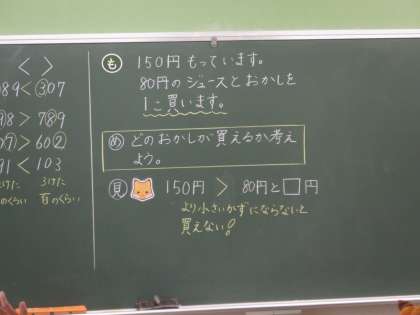 < >
89<③07
⑨8>7⑧9
0⑦>60②
91<103
2けた 3けた
のくらい 百のくらい
も 150円もっています。
80円のジュースとおかしを
1こ買います。
め どのおかしが買えるか考え
よう。
見 150円 > 80円と□円
より小さいかずにならないと
買えない!